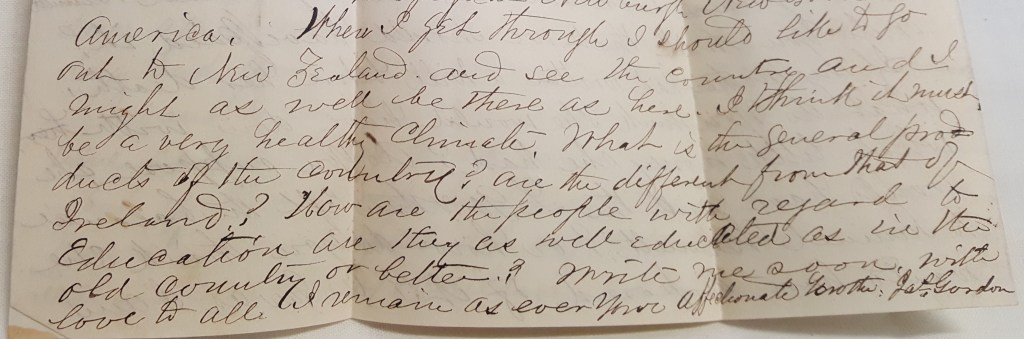 America. When I get through I should like to go
out to New Zealand and see the country and I
might as well be there as here. I think it must
be a very health Climate. What is the general prod
ducts of the country? are the different from that of
Ireland? How are the people with regard to
Education are they as well educated as in the
old country or better? write me soon. with
love to all I remain as ever Your affectionate Brother, Jas. Gordon